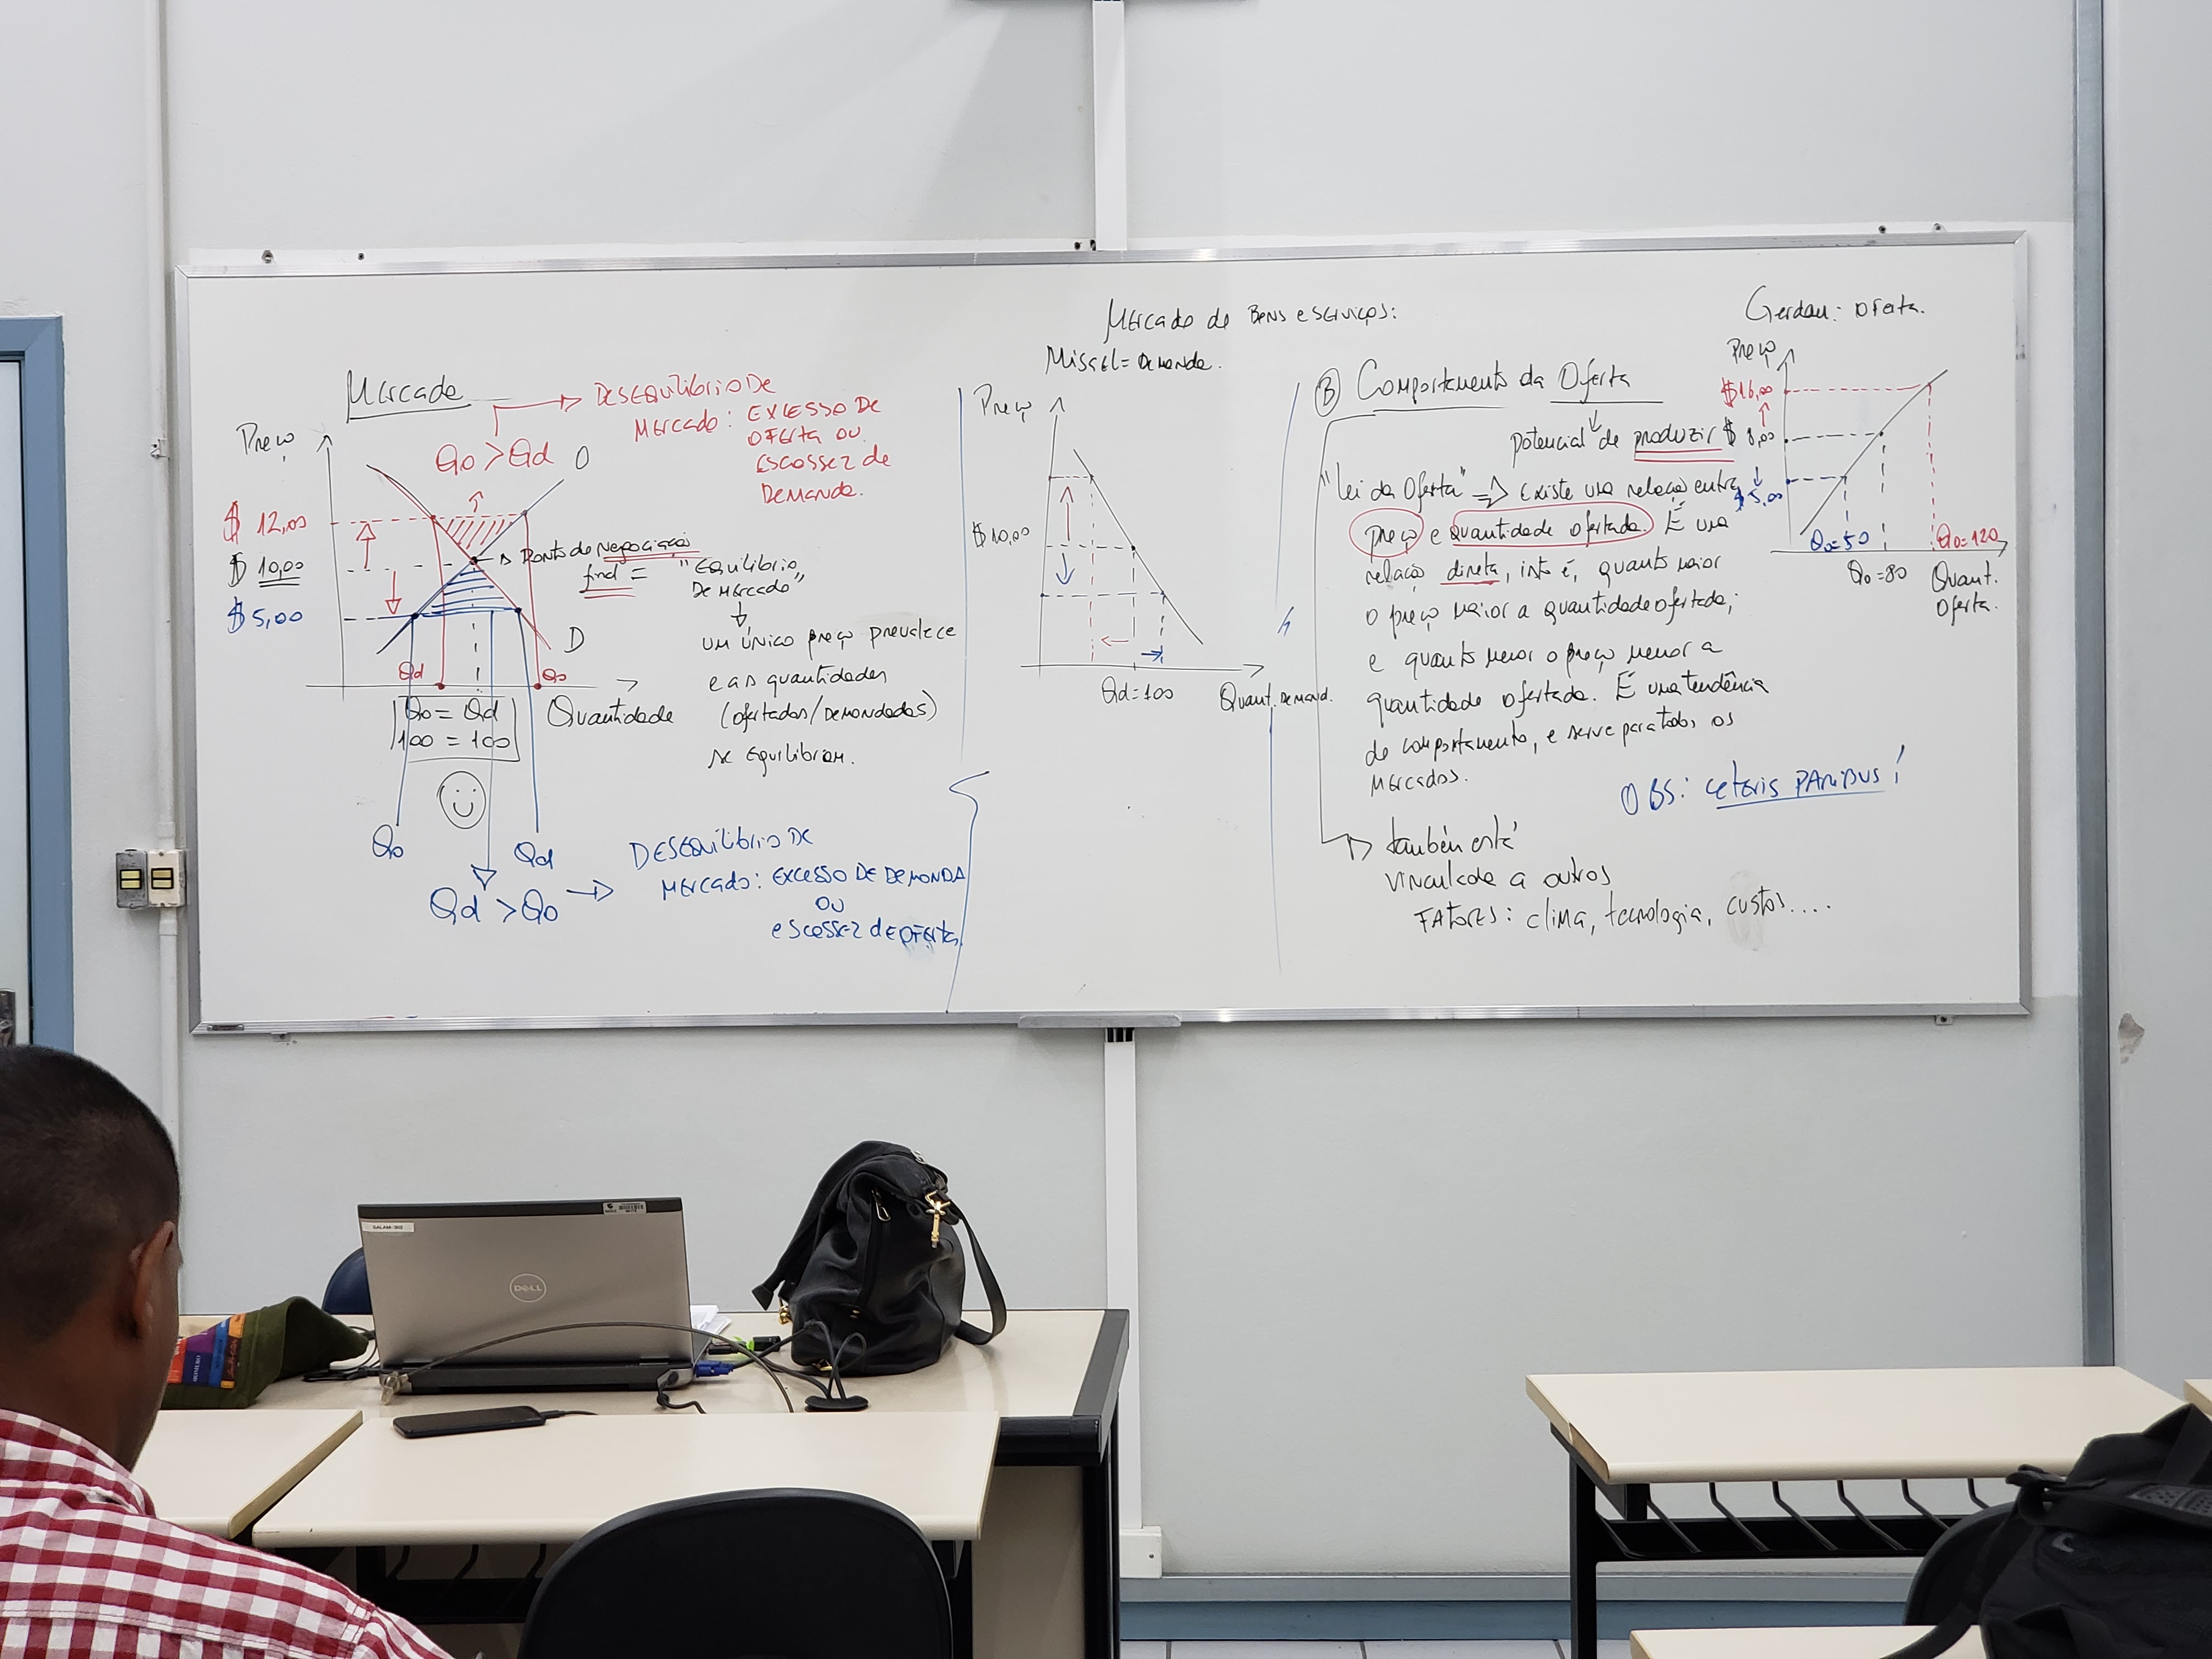 Mercado de Bens e serviços:
Mercado
Preço
Qo > Qd
O
DESEQUILIBRIO DE
MERCADO: EXCESSO DE
OFERTA OU
ESCASSEZ de
DEMANDA.
$ 12,00
$ 10,00
$ 5,00
Ponto de negociação
final = "Equilibrio
De mercado"
um único preço prevalece
e as quantidades
(ofertadas/Demandadas)
se equilibram.
D
Qd
Qo
Quantidade
Qo = Qd
100 = 100
Qo
Qd
Qd > Qo
DESEQUILIBRIO DE
MERCADO: EXCESSO DE DEMANDA
OU
escassez de oferta.
= Demanda.
Preço
$ 10,00
Qd = 100
Quant. Demand.
B Comportamento da Oferta
potencial de produzir
"Lei da Oferta" => Existe uma relação entre
preço e quantidade ofertada. É uma
relação direta, isto é, quanto maior
o preço maior a quantidade ofertada;
e quanto menor o preço menor a
quantidade ofertada. É uma tendência
de comportamento, e serve para todos os
mercados.
OBS: ceteris PARIBUS!
também está
vinculada a outros
FATORES: clima, tecnologia, custos....
Gerdau: oferta.
Preço
$ 16,00
$ 8,00
$ 5,00
Qo = 50
Qo = 80
Qo = 120
Quant.
Oferta.
DELL